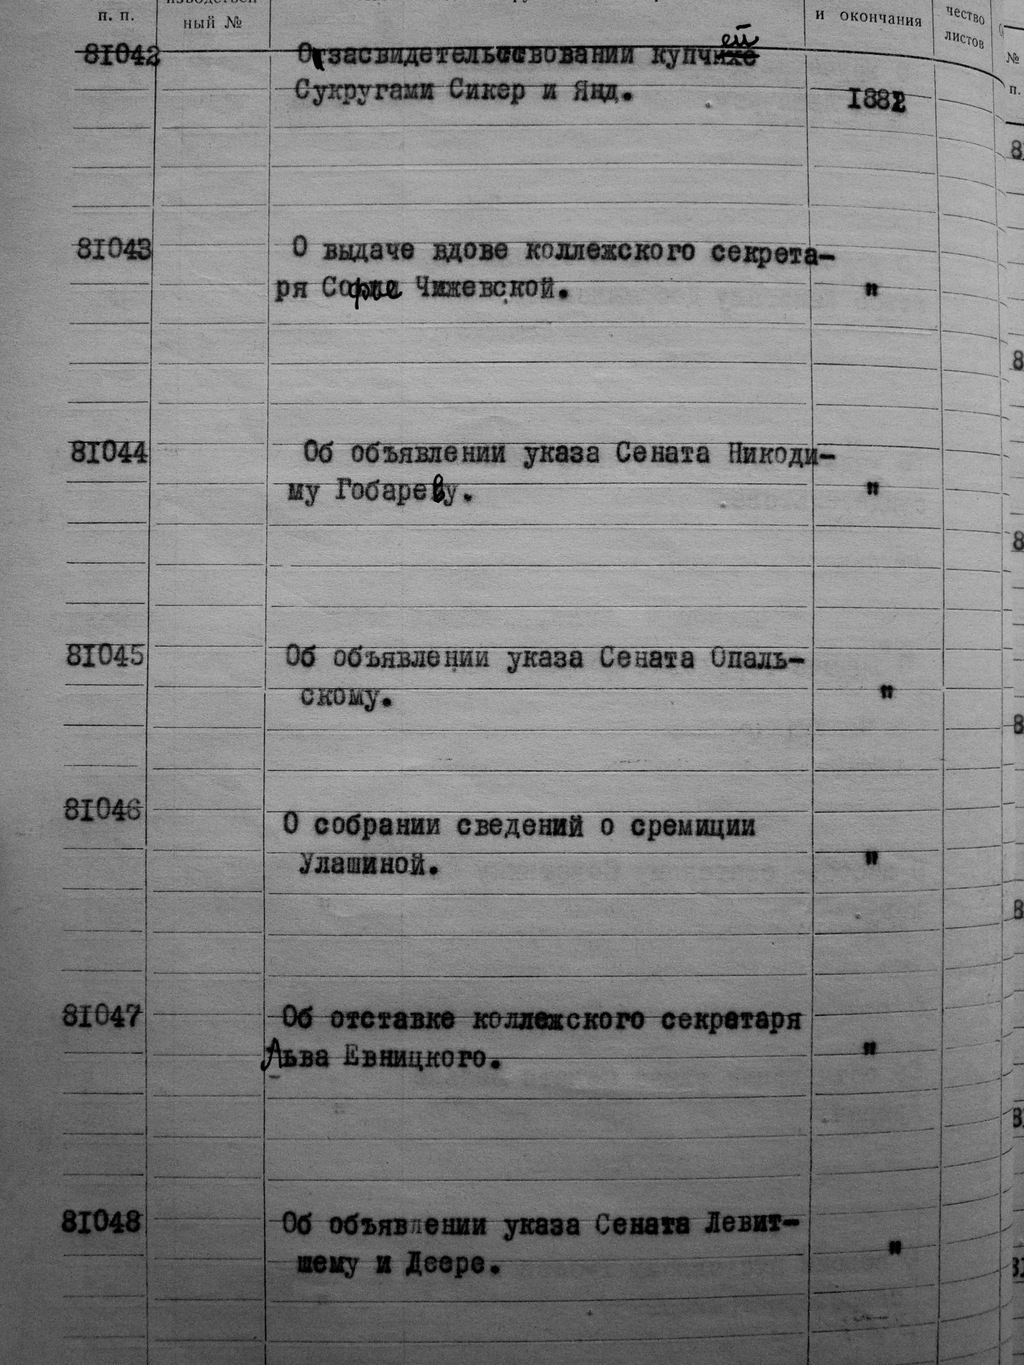 п. п.
ный №
и окончания
чество
листов
№
п.
81042
О засвидетельствовании купчей
Сукругами Сикер и Янд.
1882
81043
О выдаче вдове коллежского секрета-
ря Софие Чижевской.
"
81044
Об объявлении указа Сената Никоди-
му Гобареву.
"
81045
Об объявлении указа Сената Опаль-
скому.
"
81046
О собрании сведений о сремиции
Улашиной.
"
81047
Об отставке коллежского секретаря
Льва Евницкого.
"
81048
Об объявлении указа Сената Левит-
шему и Деере.
"